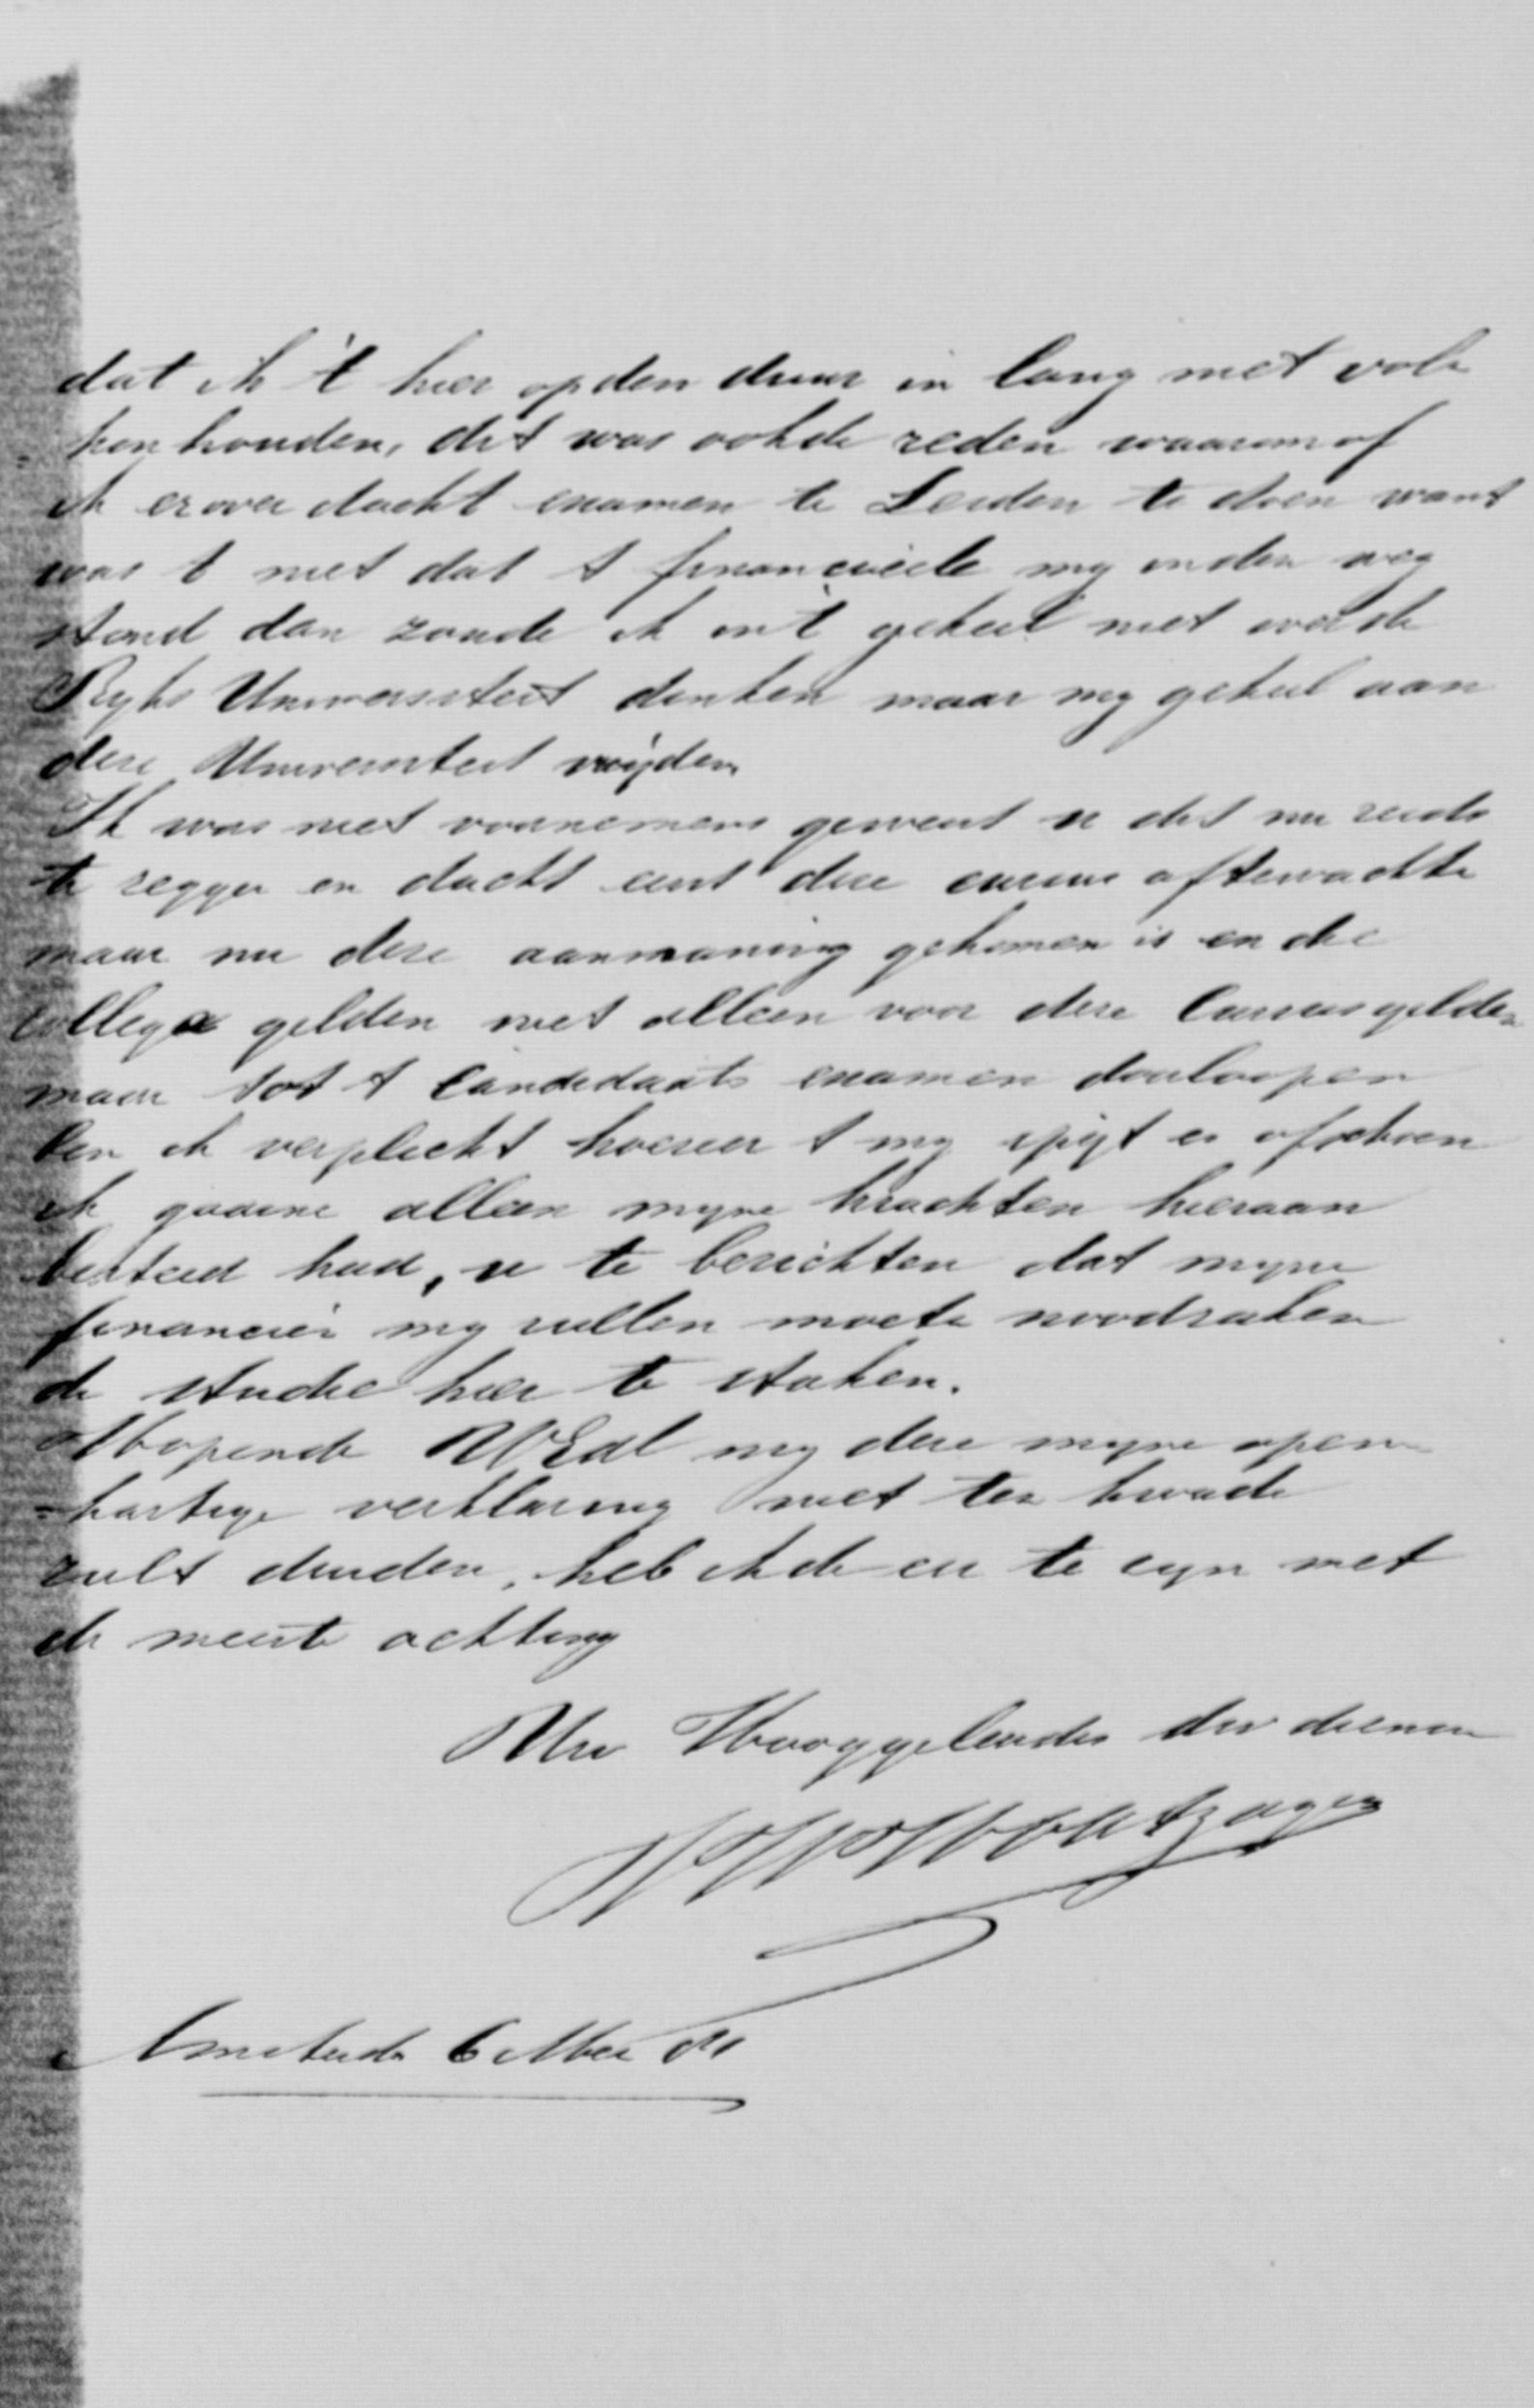 dat ik 't hier op den duur in lang niet vol
kon houden, dit was ook de reden waarom of
ik erover dacht examen te Leiden te doen want
was t niet dat t financieele my in den weg
stond dan zoude ik in 't geheel niet over de
Ryks Universiteit denken maar my geheel aan
deze Universiteit wyden.
Ik was niet voornemens geweest u dit nu reeds
te zeggen en dacht eerst deze cursus aftewachten
maar nu deze aanmaning gekomen is en die
collega gelden niet alleen voor deze Cursus gelden
maar tot t Candidaats examen doorloopen
ben ik verplicht hoezeer t my spyt en ofschoon
ik gaarne alleen myne krachten hieraan
besteed had, u te berichten dat myne
financieën my zullen moeten noodzaken
de studie hier te staken.
Hopende UWEdl my deze myne open
=hartige verklaring niet ten kwade
zult duiden, heb ik de eer te zyn met
de meeste achting
Uw Hooggeleerdes dw dienaar
Amsterdam 6 Mei